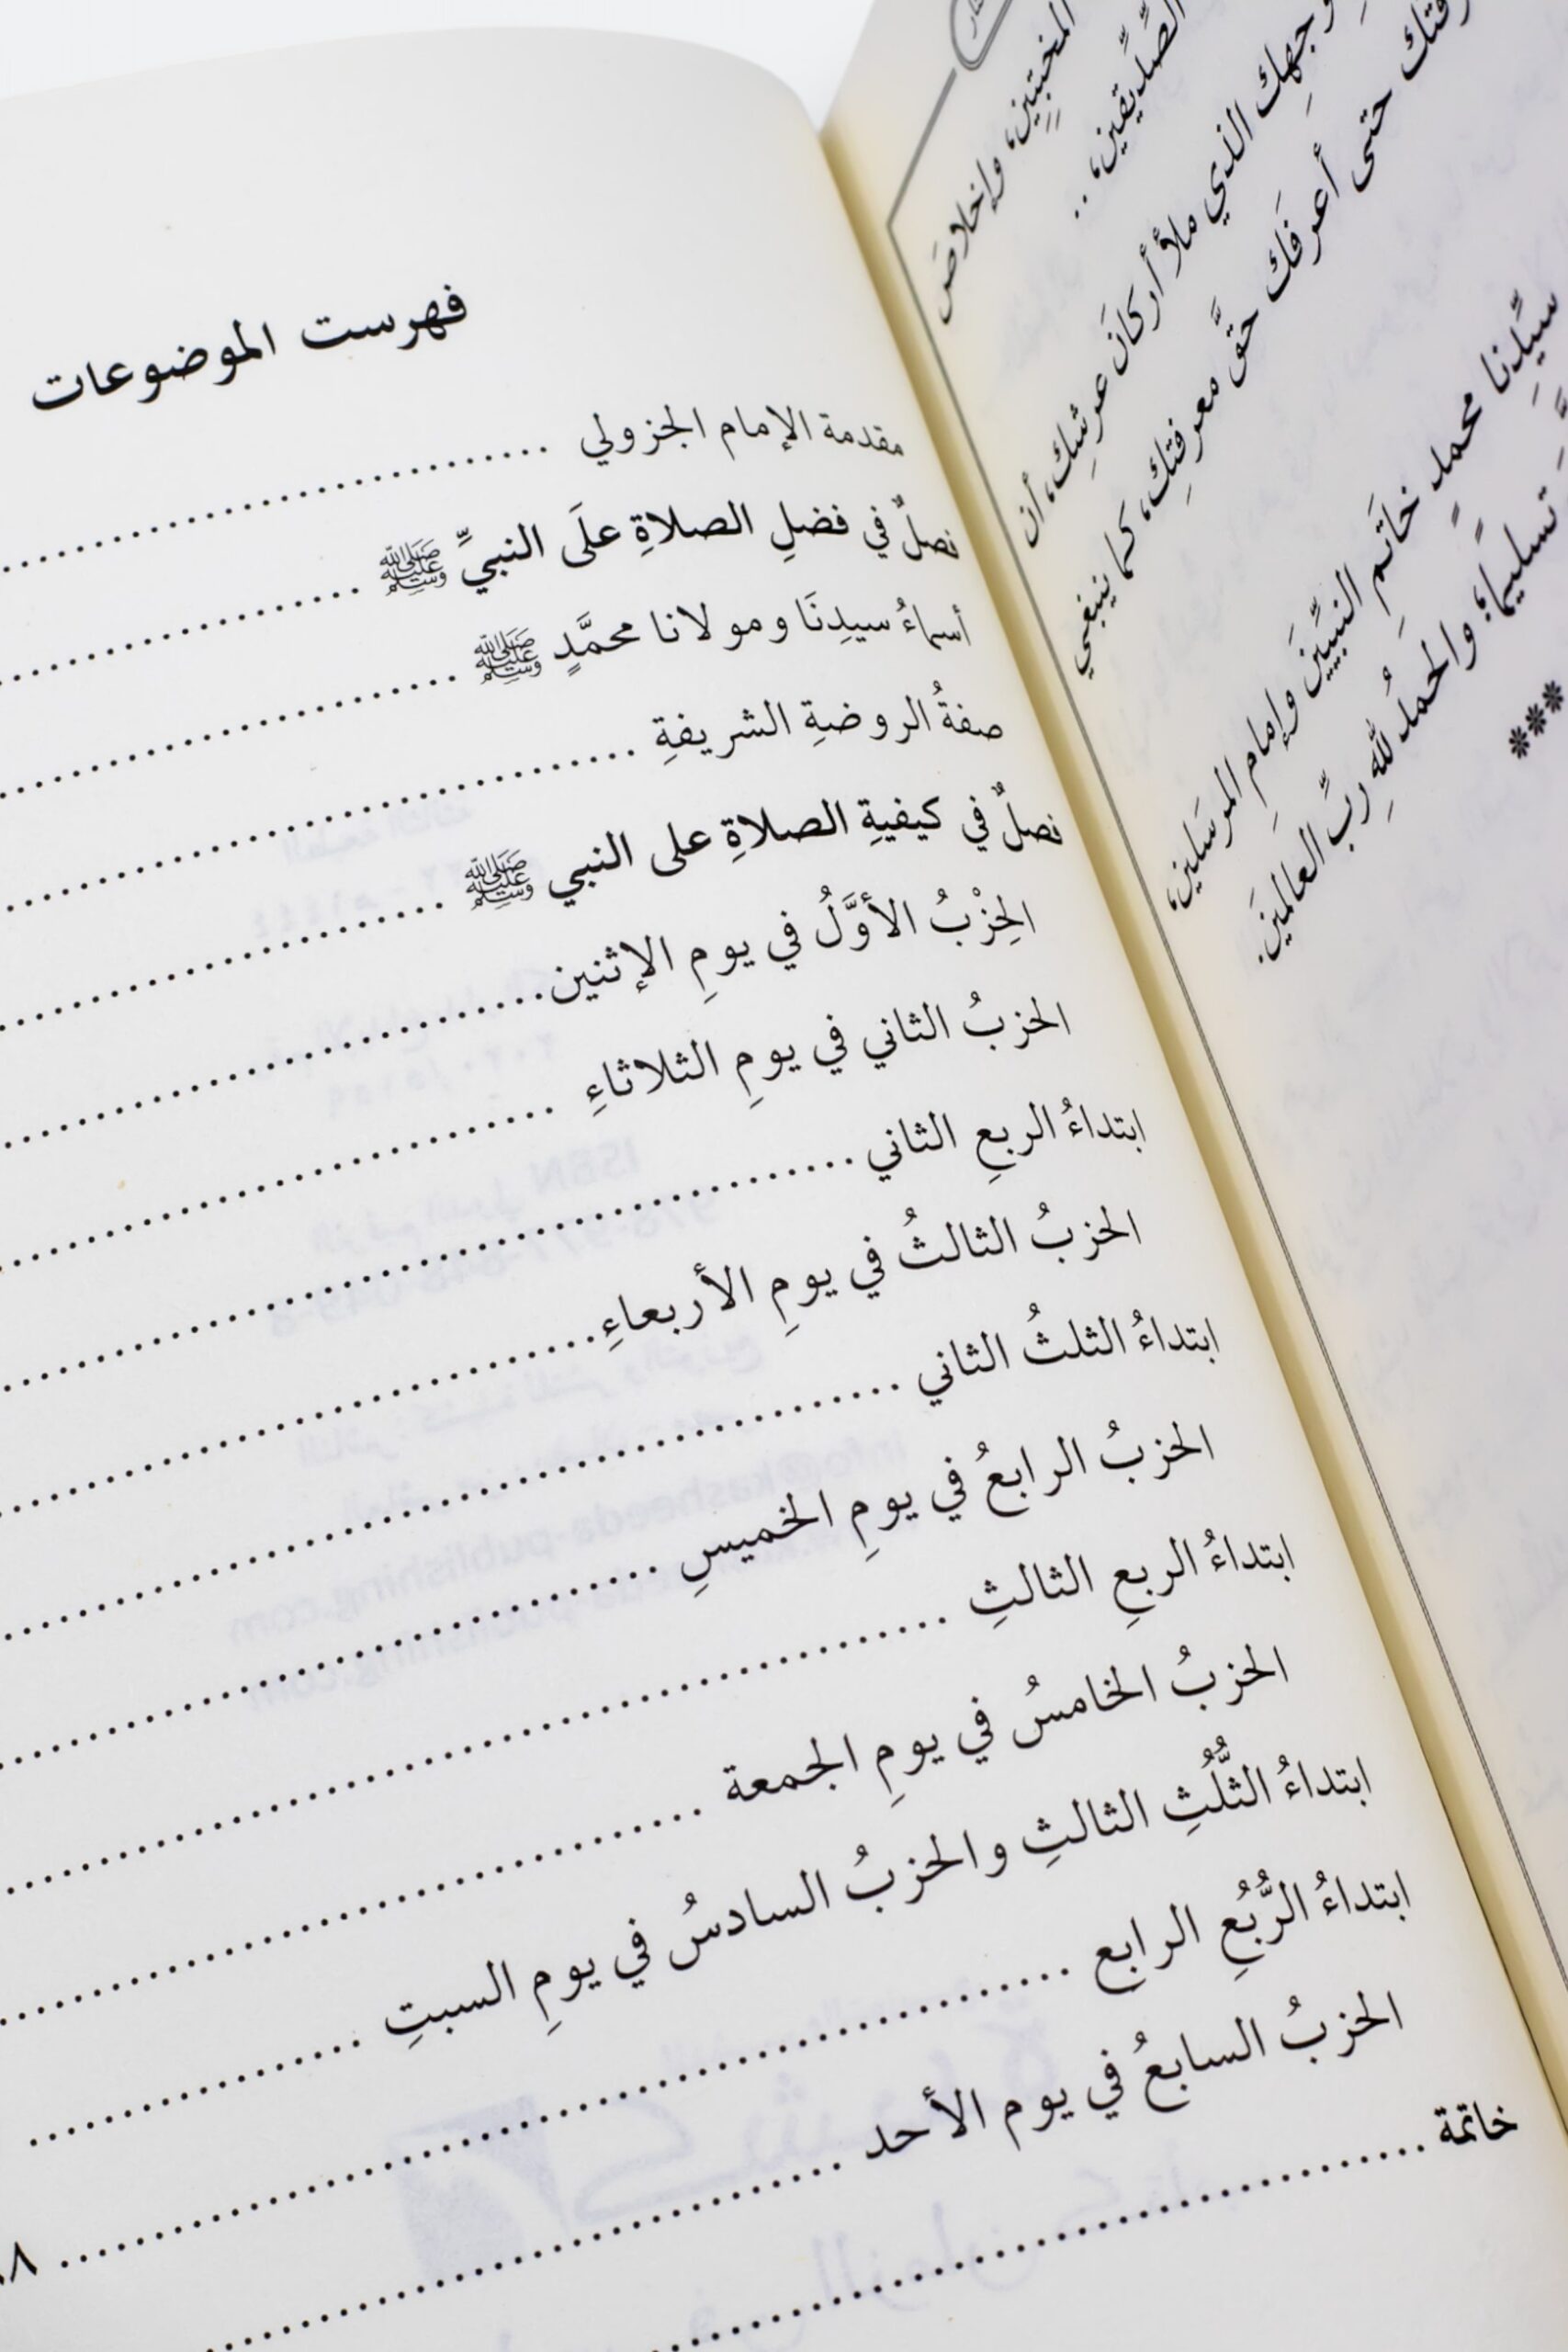 المخبتين، وإخلاصَ
الصِّدِّيقين، ..
وجهِك الذي ملأ أركانَ عرشِك، أن
حتى أعرفَك حقَّ معرفتِك، كما ينبغي
سيِّدِنا محمدٍ خاتَمِ النبيِّينَ وإمامِ المرسَلين،
تسليمًا؛ والحمدُ للهِ ربِّ العالمينَ.
***
فهرست الموضوعات
مقدمة الإمام الجزولي ..............................
فصلٌ في فضلِ الصلاةِ علَى النبيِّ ﷺ ....................
أسماءُ سيدِنَا ومولانا محمَّدٍ ﷺ ..........................
صفةُ الروضةِ الشريفةِ ....................................
فصلٌ في كيفيةِ الصلاةِ على النبي ﷺ .........................
الحِزْبُ الأوَّلُ في يومِ الإثنين..............................
الحزبُ الثاني في يومِ الثلاثاءِ ..............................
ابتداءُ الربعِ الثاني ..............................................
الحزبُ الثالثُ في يومِ الأربعاءِ................................
ابتداءُ الثلثُ الثاني ................................................
الحزبُ الرابعُ في يومِ الخميسِ ..................................
ابتداءُ الربعِ الثالثِ ..................................................
الحزبُ الخامسُ في يومِ الجمعة ....................................
ابتداءُ الثُّلُثِ الثالثِ والحزبُ السادسُ في يومِ السبتِ ..................
ابتداءُ الرُّبُعِ الرابع ....................................................
الحزبُ السابعُ في يوم الأحد ..................................
خاتمة ........................................